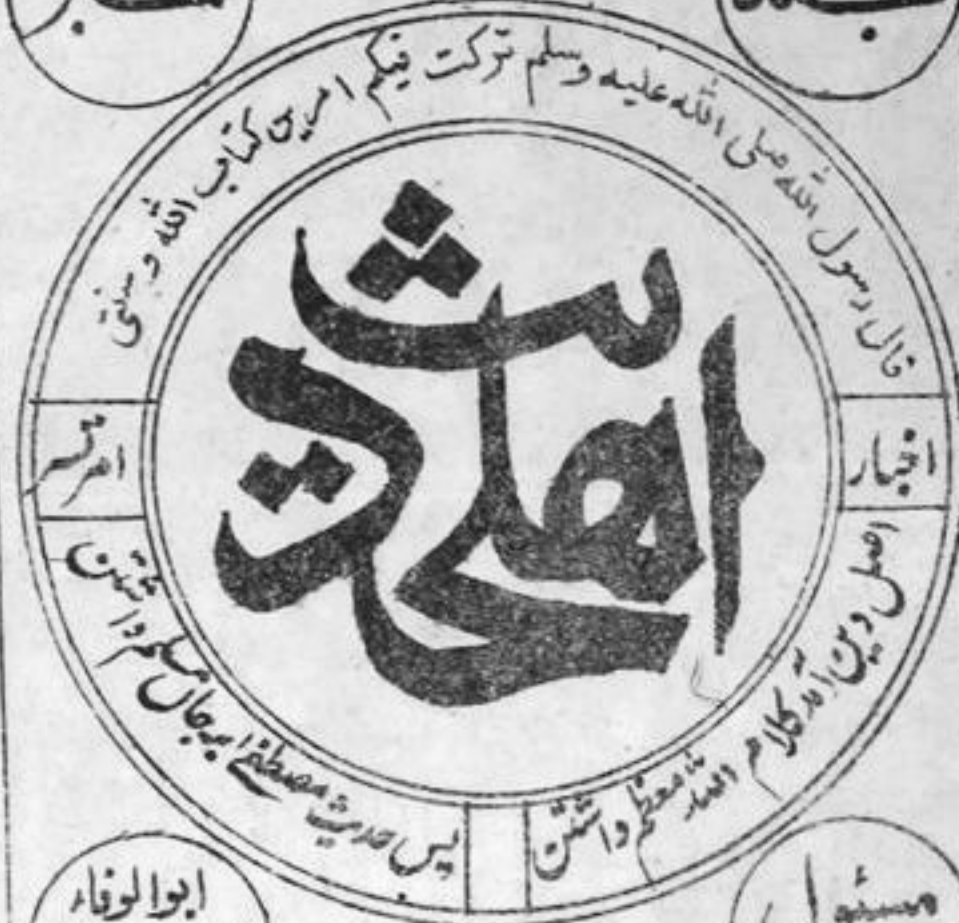 قال رسول الله صلی الله علیه وسلم ترکت فیکم امرین کتاب الله و سنتی
اهلحدیث
اخبار
امرتسر
اصل دین آمد کلام اللہ معظم داشتن
پس حدیث مصطفےٰ بر جاں مسلم داشتن
ابوالوفاء